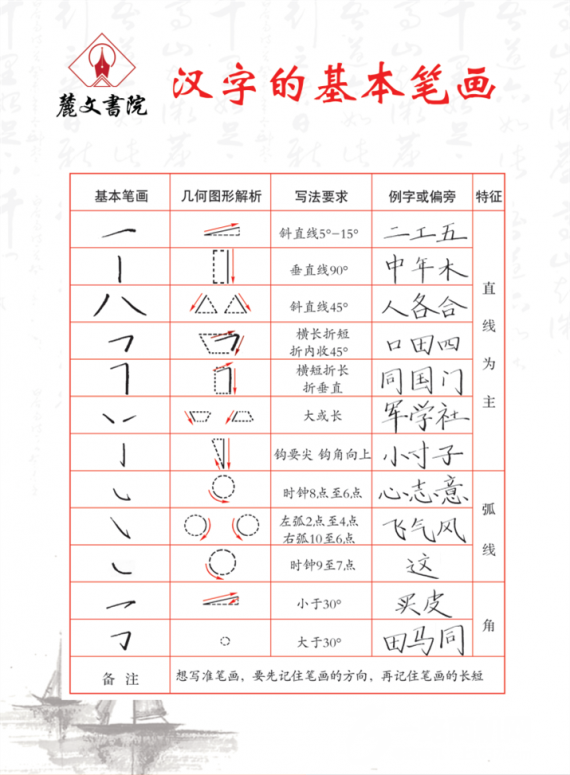 麓文書院
汉字的基本笔画
基本笔画 几何图形解析 写法要求 例字或偏旁 特征
斜直线5°-15° 二工五
垂直线90° 中年木
斜直线45° 人各合
横长折短
折内收45° 口田四
横短折长
折垂直 同国门
大或长 军学社
钩要尖 钩角向上 小寸子
直线为主
时钟8点至6点 心志意
左弧2点至4点
右弧10至6点 飞气风
时钟9至7点 这
弧线
小于30° 买皮
大于30° 田马同
角
备注 想写准笔画，要先记住笔画的方向，再记住笔画的长短